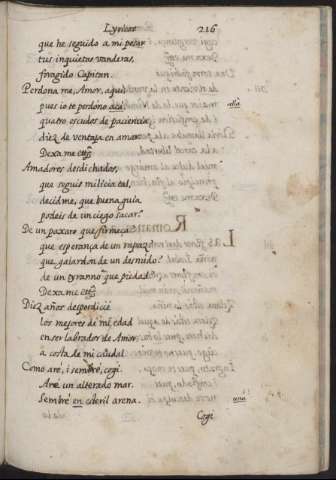 Lyricas 216
que he seguido a mi pesar
tus inquietas vanderas,
foragido Capitan.
Perdona me, Amor, aqui,
pues io te perdono aca alla
quatro escudos de paciencia,
diez de ventaja en amar.
Dexa me etc.
Amadores desdichados,
que seguis milicia tal,
decid me, que buena guia
podeis de un ciego sacar?
De un paxaro que firmeça?
que esperança de un rapaz?
que galardon de un desnudo?
de un tyranno que piedad?
Dexa me etc.
Diez años desperdicié
los mejores de mi edad
en ser labrador de Amor
a costa de mi caudal.
Como aré, i sembré, cogi.
Aré un alterado mar.
Sembré en esteril arena.
Cogi